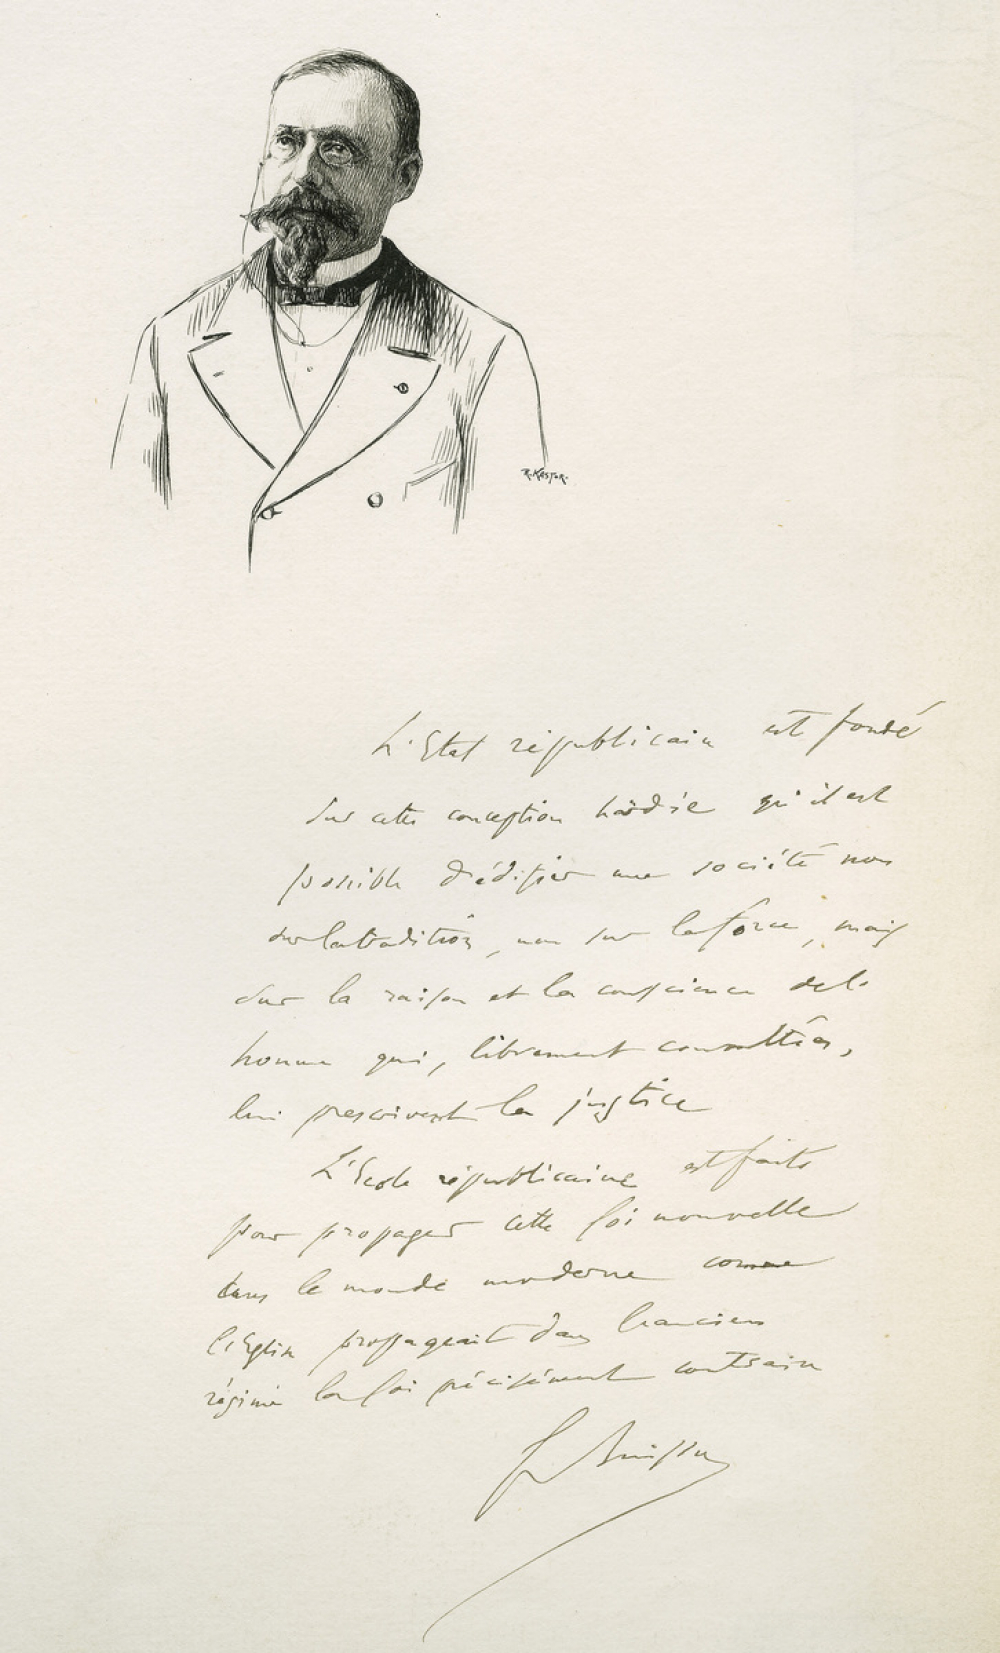 R. KASTOR.
L'Etat républicain est fondé
sur cette conception hardie qu'il est
possible d'édifier une société non
sur la tradition, non sur la force, mais
sur la raison et la conscience de l'
homme qui, librement consultées,
lui prescrivent la justice
L'Ecole républicaine est faite
pour propager cette foi nouvelle
dans le monde moderne comme
l'Eglise propageait dans l'ancien
régime la foi précisément contraire
F Buisson